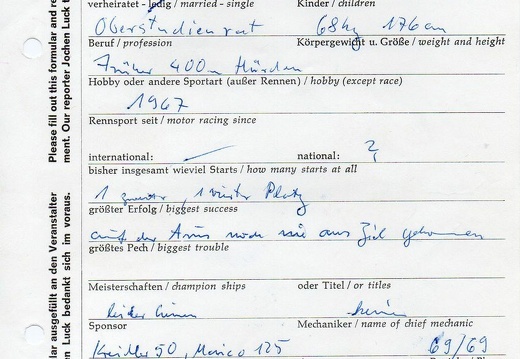 verheiratet - ledig / married - single Kinder / children
Oberstudienrat 68 kg 176 cm
Beruf / profession Körpergewicht u. Größe / weight and height
Früher 400 m Hürden
Hobby oder andere Sportart (außer Rennen) / hobby (except race)
1967
Rennsport seit / motor racing since
international: national: ?
bisher insgesamt wieviel Starts / how many starts at all
1 zweiter, 1 vierter Platz
größter Erfolg / biggest success
auf der Avus noch nie ans Ziel gekommen
größtes Pech / biggest trouble
Meisterschaften / champion ships oder Titel / or titles
leider keinen keinen
Sponsor Mechaniker / name of chief mechanic
Kreidler 50, Maico 125 69/69
Please fill out this formular and re
ment. Our reporter Jochen Luck t
lar ausgefüllt an den Veranstalter
en Luck bedankt sich im voraus.